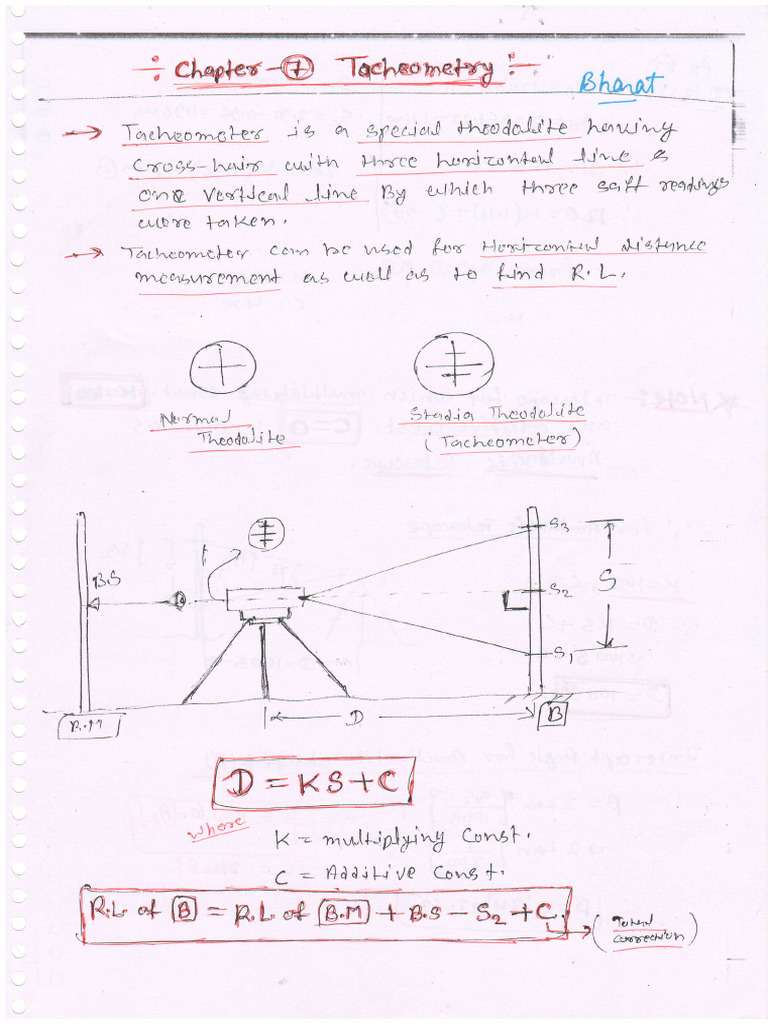 ÷ Chapter-⑦ Tacheometry ÷
Bharat
→ Tacheometer is a special theodalite having
Cross-hair with three horizontal line &
one vertical line By which three saff readings
were taken.
→ Tacheometer can be used for Horizontal distance
measurement as well as to find R.L.
Normal
Theodalite
Stadia Theodalite
(Tacheometer)
S3
B.S
S2
S
S1
B.M
D
B
D = KS + C
where
K = multiplying Const.
C = Additive Const.
R.L. of B = R.L. of B.M + B.S - S2 + C
(Total
correction)